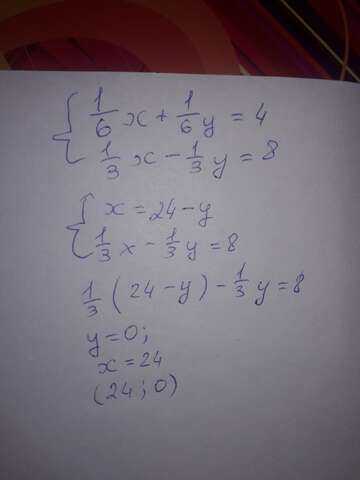 { 1/6 x + 1/6 y = 4
1/3 x - 1/3 y = 8
{ x = 24 - y
1/3 x - 1/3 y = 8
1/3 ( 24 - y ) - 1/3 y = 8
y = 0;
x = 24
(24; 0)